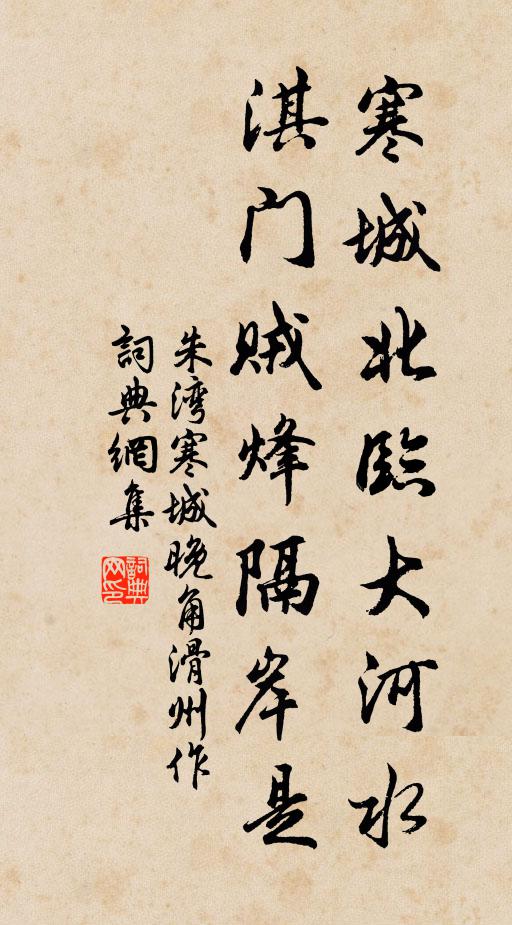 寒城北臨大河水
淇门賊烽隔岸是
朱湾寒城晚角滑州作
詞典網集
詞典网印